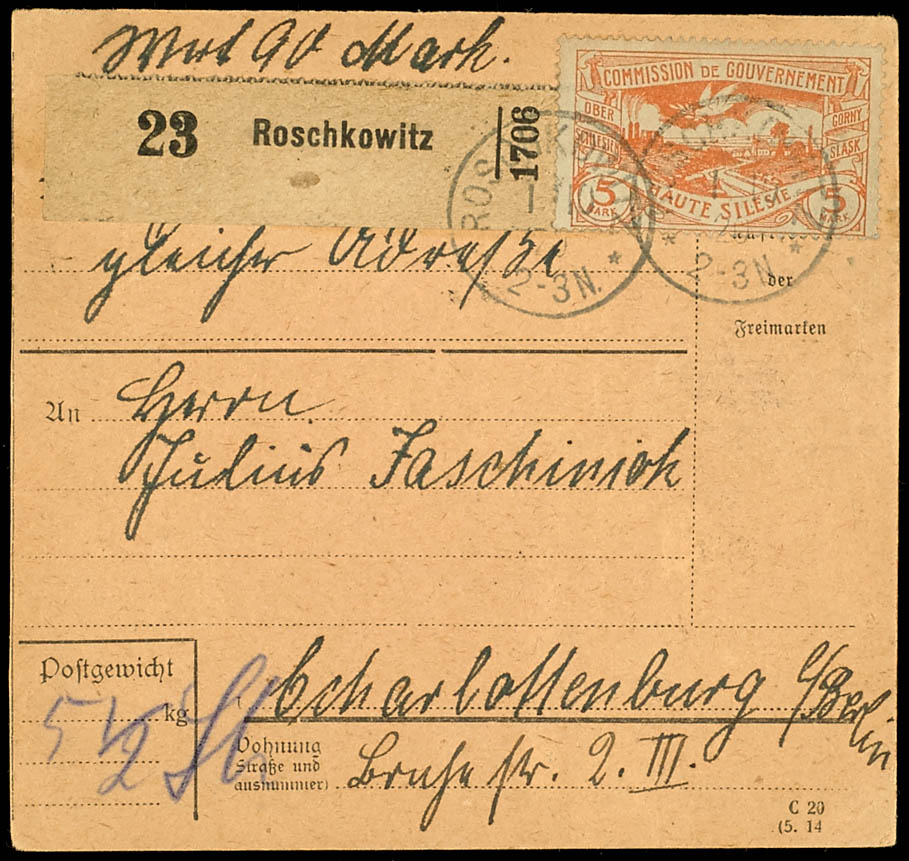 Wert 90 Mark.
23 Roschkowitz 1706
COMMISSION DE GOUVERNEMENT
OBER GORNY
SCHLESIEN ŚLĄSK
5 MARK HAUTE SILÉSIE 5 MARK
2-3N. * * 2-3N *
gleicher Adresse
der
Freimarken
An Herrn
Julius Jaschinick
Postgewicht
5 1/2 kg
Charlottenburg b/Berlin
Wohnung
(Straße und
Hausnummer) str. 2. III.
C 20
(5. 14